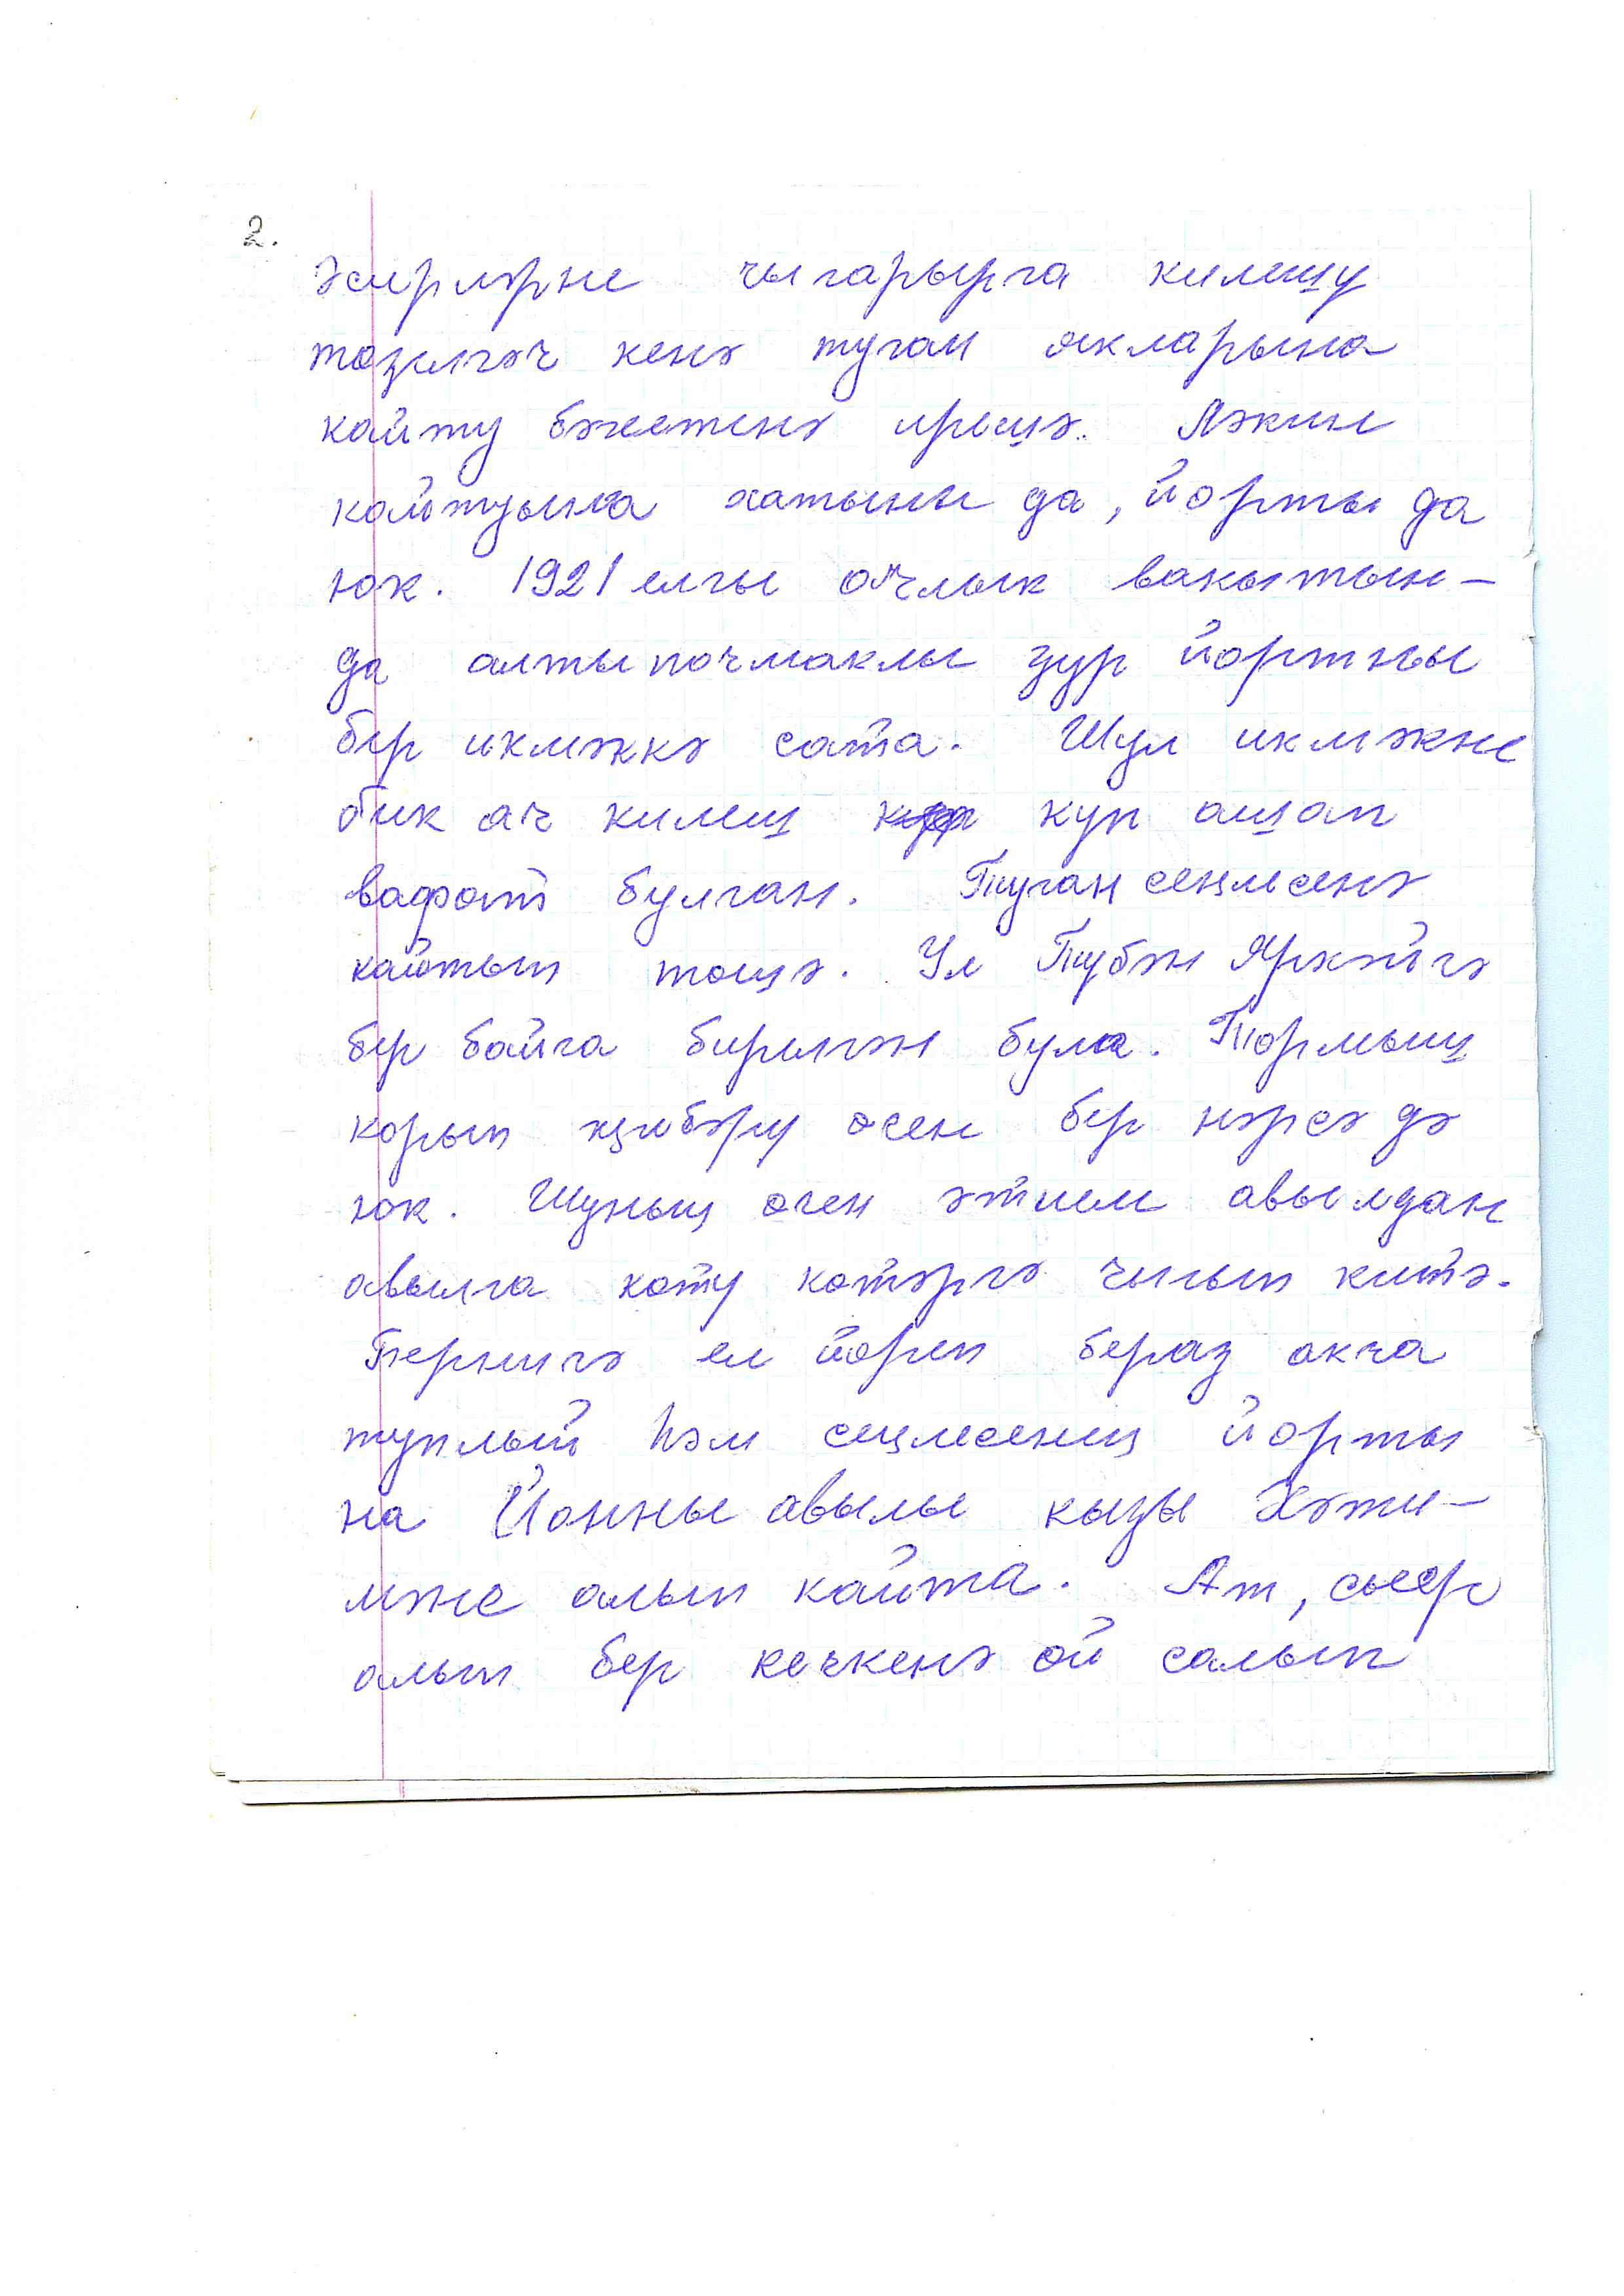 2.
әсирләрне чыгарырга килешү
төзелгәч кенә туган якларына
кайту бәхетенә ирешә. Ләкин
кайтуына хатыны да, йорты да
юк. 1921 елгы ачлык вакытын-
да алты почмаклы зур йортны
бер икмәккә сата. Шул икмәкне
бик ач килеш күп ашап
вафат булган. Туган сеңлесенә
кайтып төшә. Ул Түбән Яркәйгә
бер байга бирелгән була. Тормыш
корып җибәрү өчен бер нәрсә дә
юк. Шуның өчен әтием авылдан
авылга көтү көтәргә чыгып китә.
Берничә ел йөреп бераз акча
туплый һәм сеңлесенең йорты
на Йонны авылы кызы Хәти-
мәне алып кайта. Ат, сыер
алып бер кечкенә өй салып